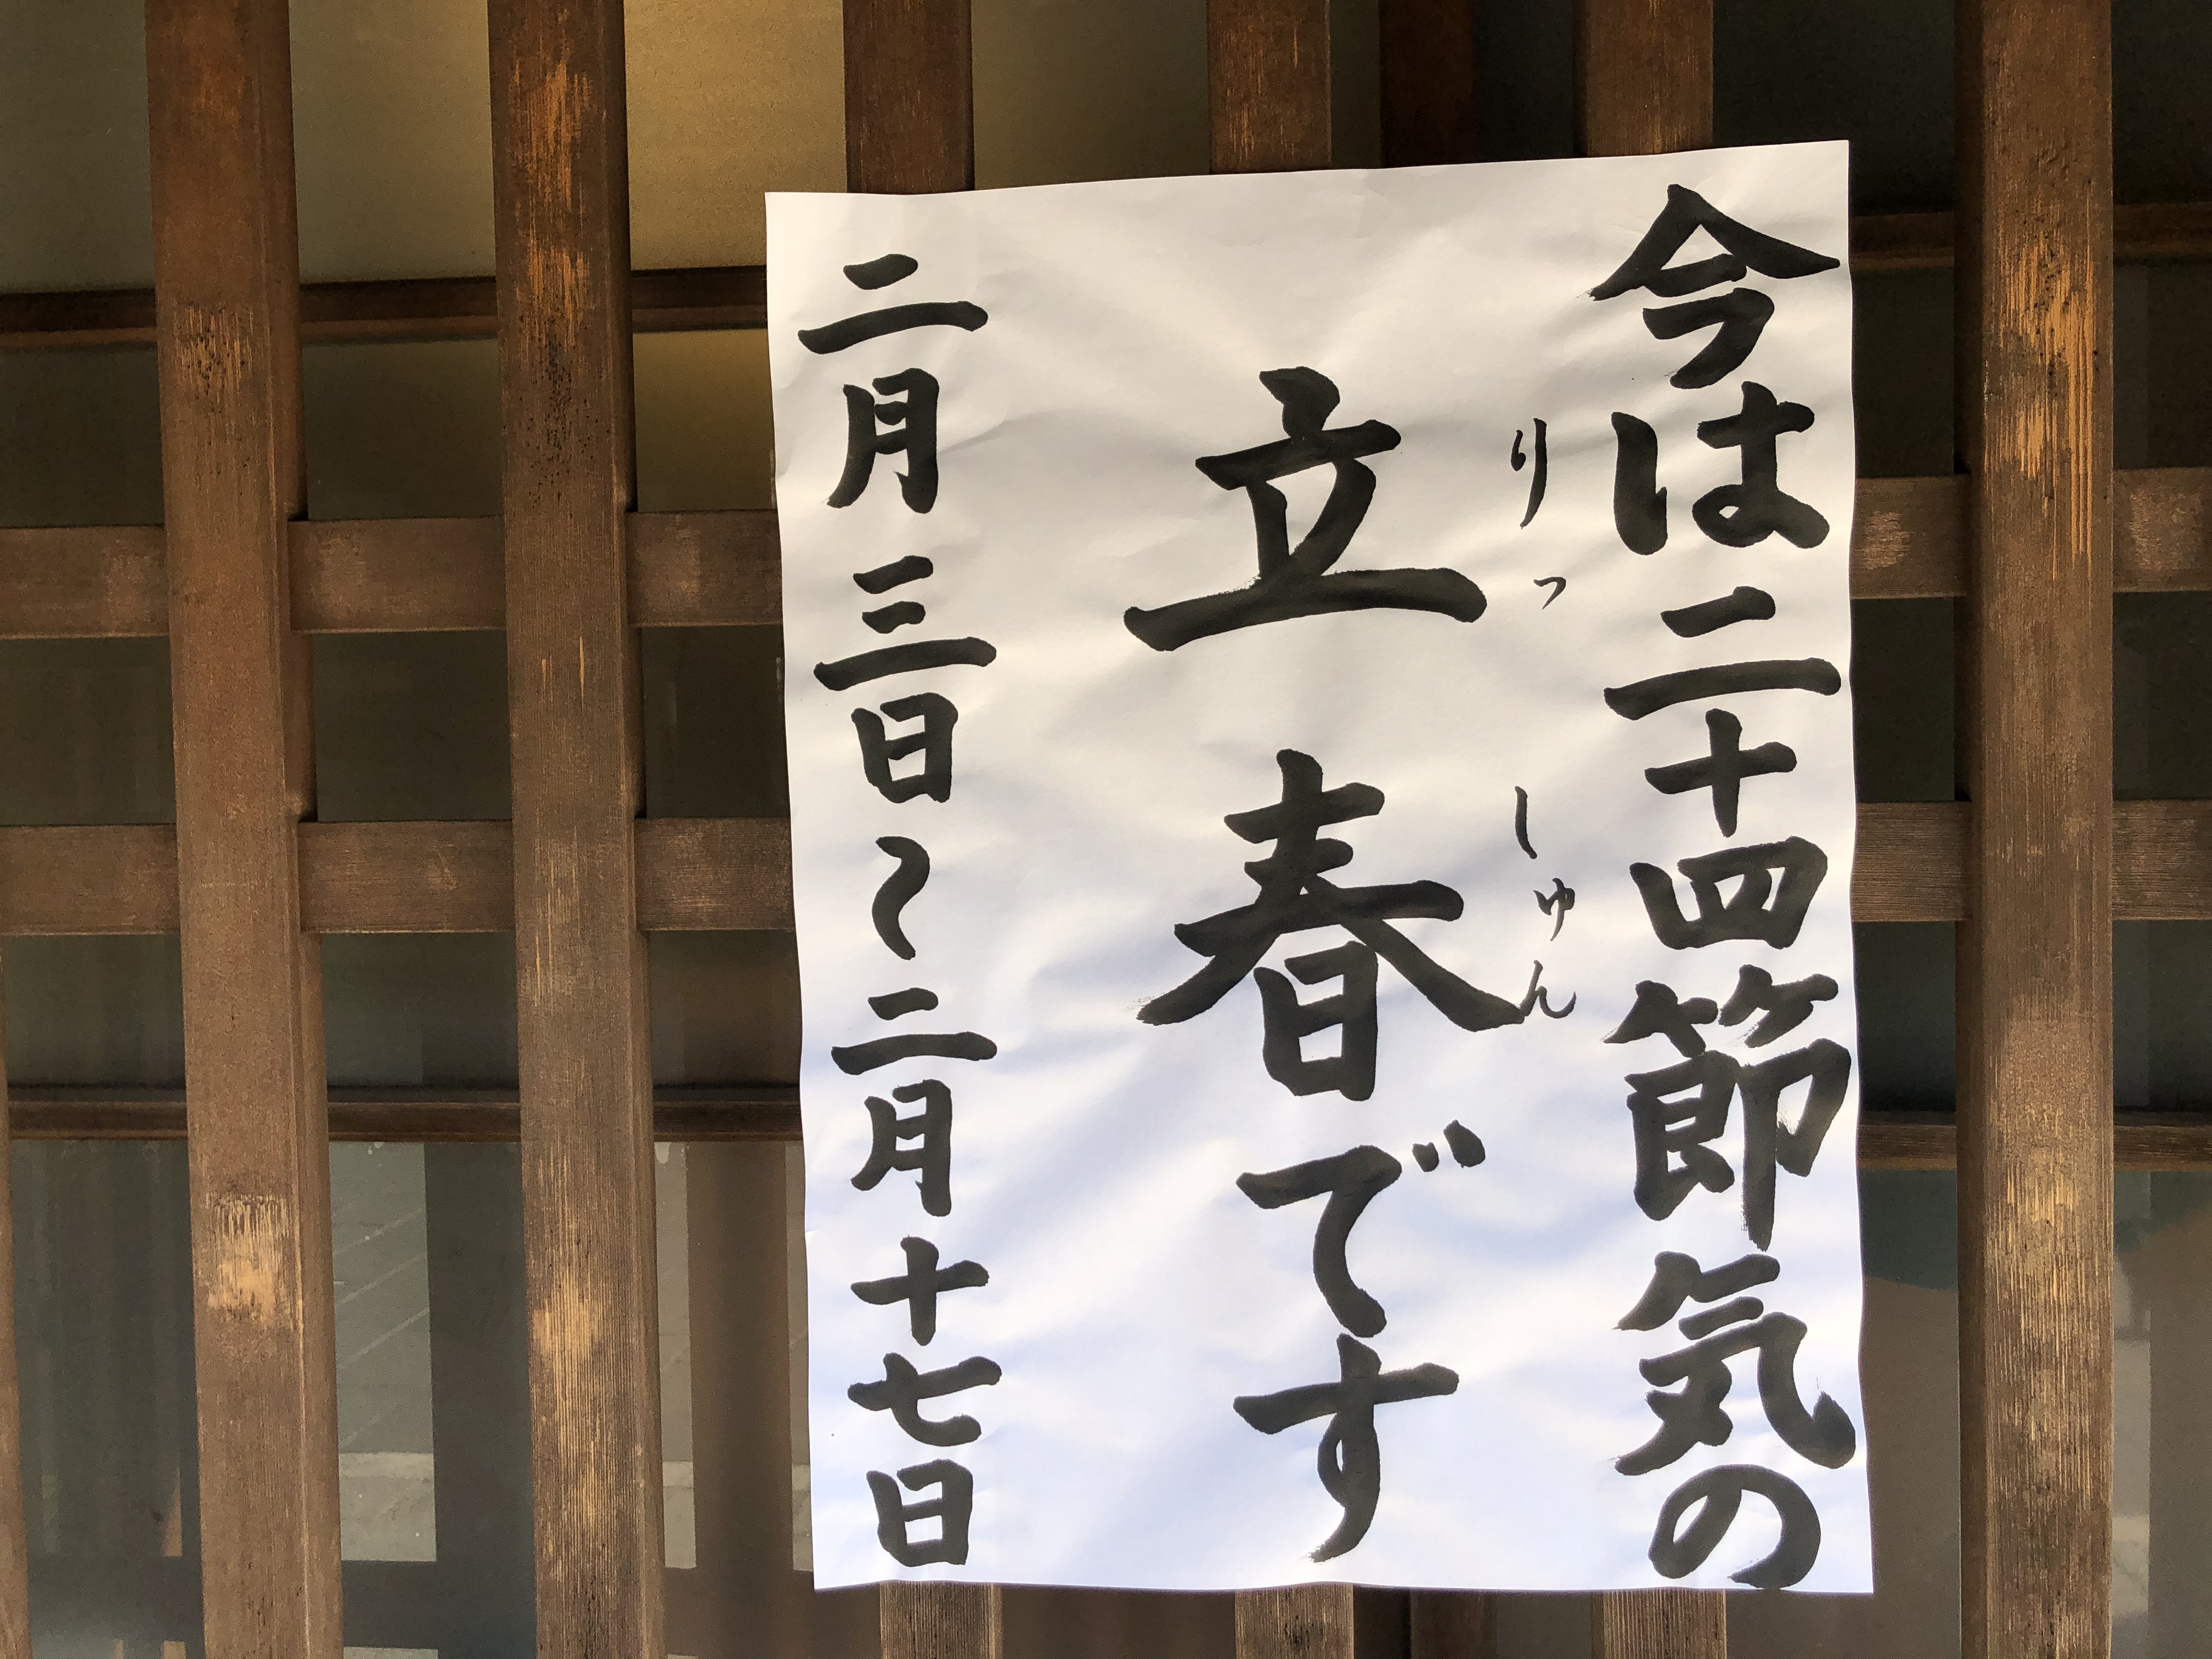 今は二十四節気の
りっしゅん
立春です
二月三日〜二月十七日